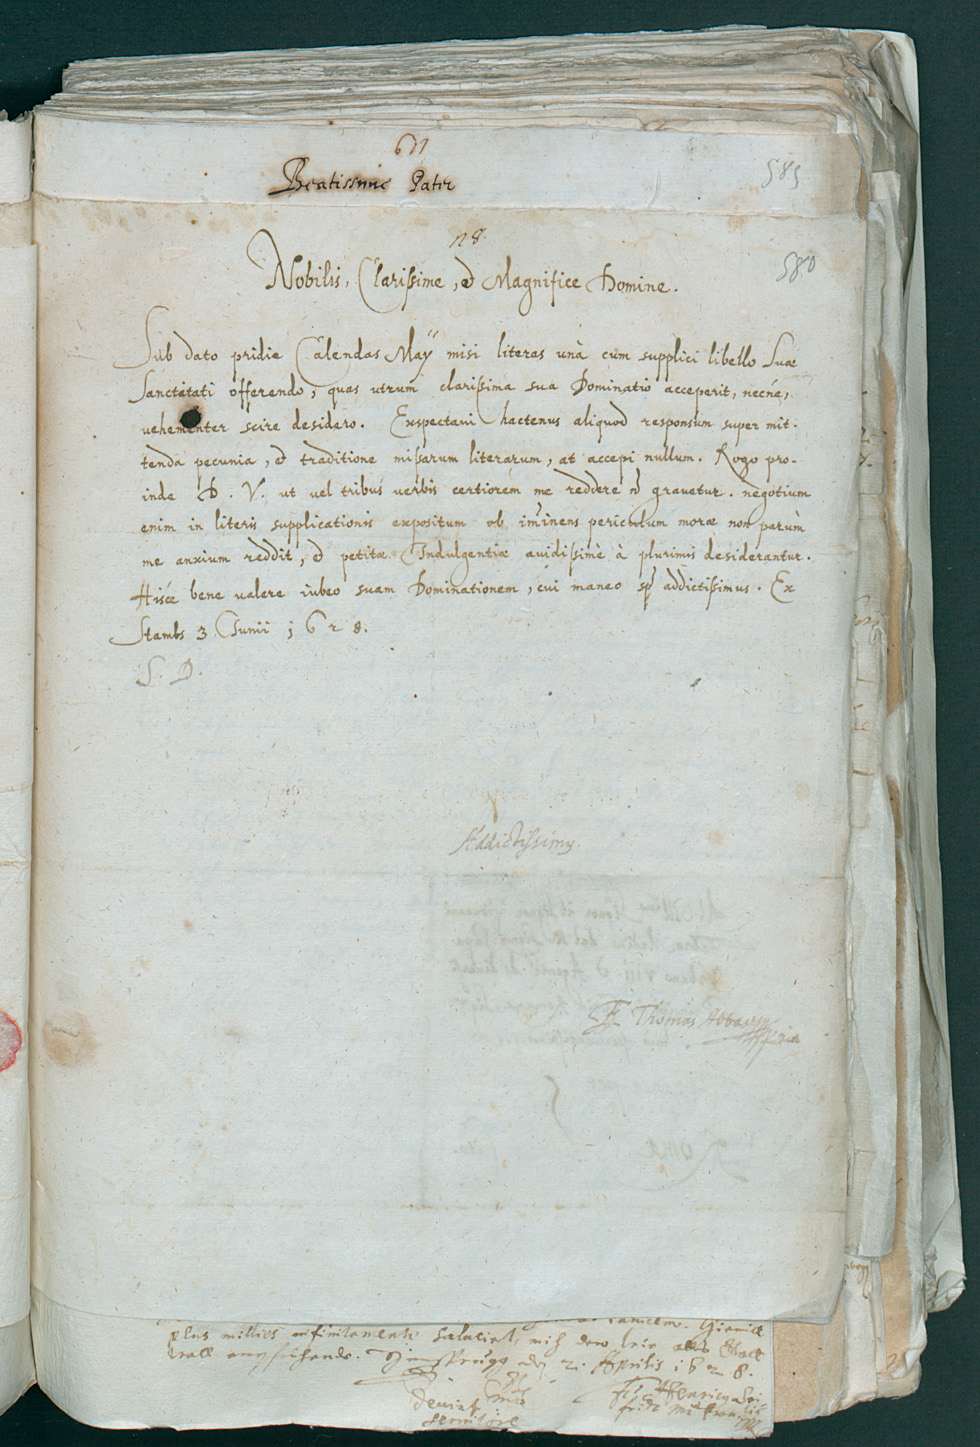 611
Beatissime Pater
585
128.
580
Nobilis, Clarissime, et Magnifice Domine.
Sub dato pridie Calendas Maÿ misi literas unà cum supplici libello Suae
Sanctitati offerendo, quas utrum clarissima sua Dominatio acceperit, necne,
vehementer scire desidero. Exspectavi hactenus aliquod responsum super mit-
tenda pecunia, et traditione missarum literarum, at accepi nullum. Rogo pro-
inde D. V. ut vel tribus verbis certiorem me reddere nõ gravetur. negotium
enim in literis supplicationis expositum ob im̃inens periculum morae non parum
me anxium reddit, et petitae Indulgentiae avidissimè à plurimis desiderantur.
Hisce bene valere iubeo suam Dominationem, cui maneo sp addictissimus. Ex
Stambs 3 Iunii 1628.
S. D.
Addictissimus
F. Thomas Abbas
Aprilis 1628.
servitore